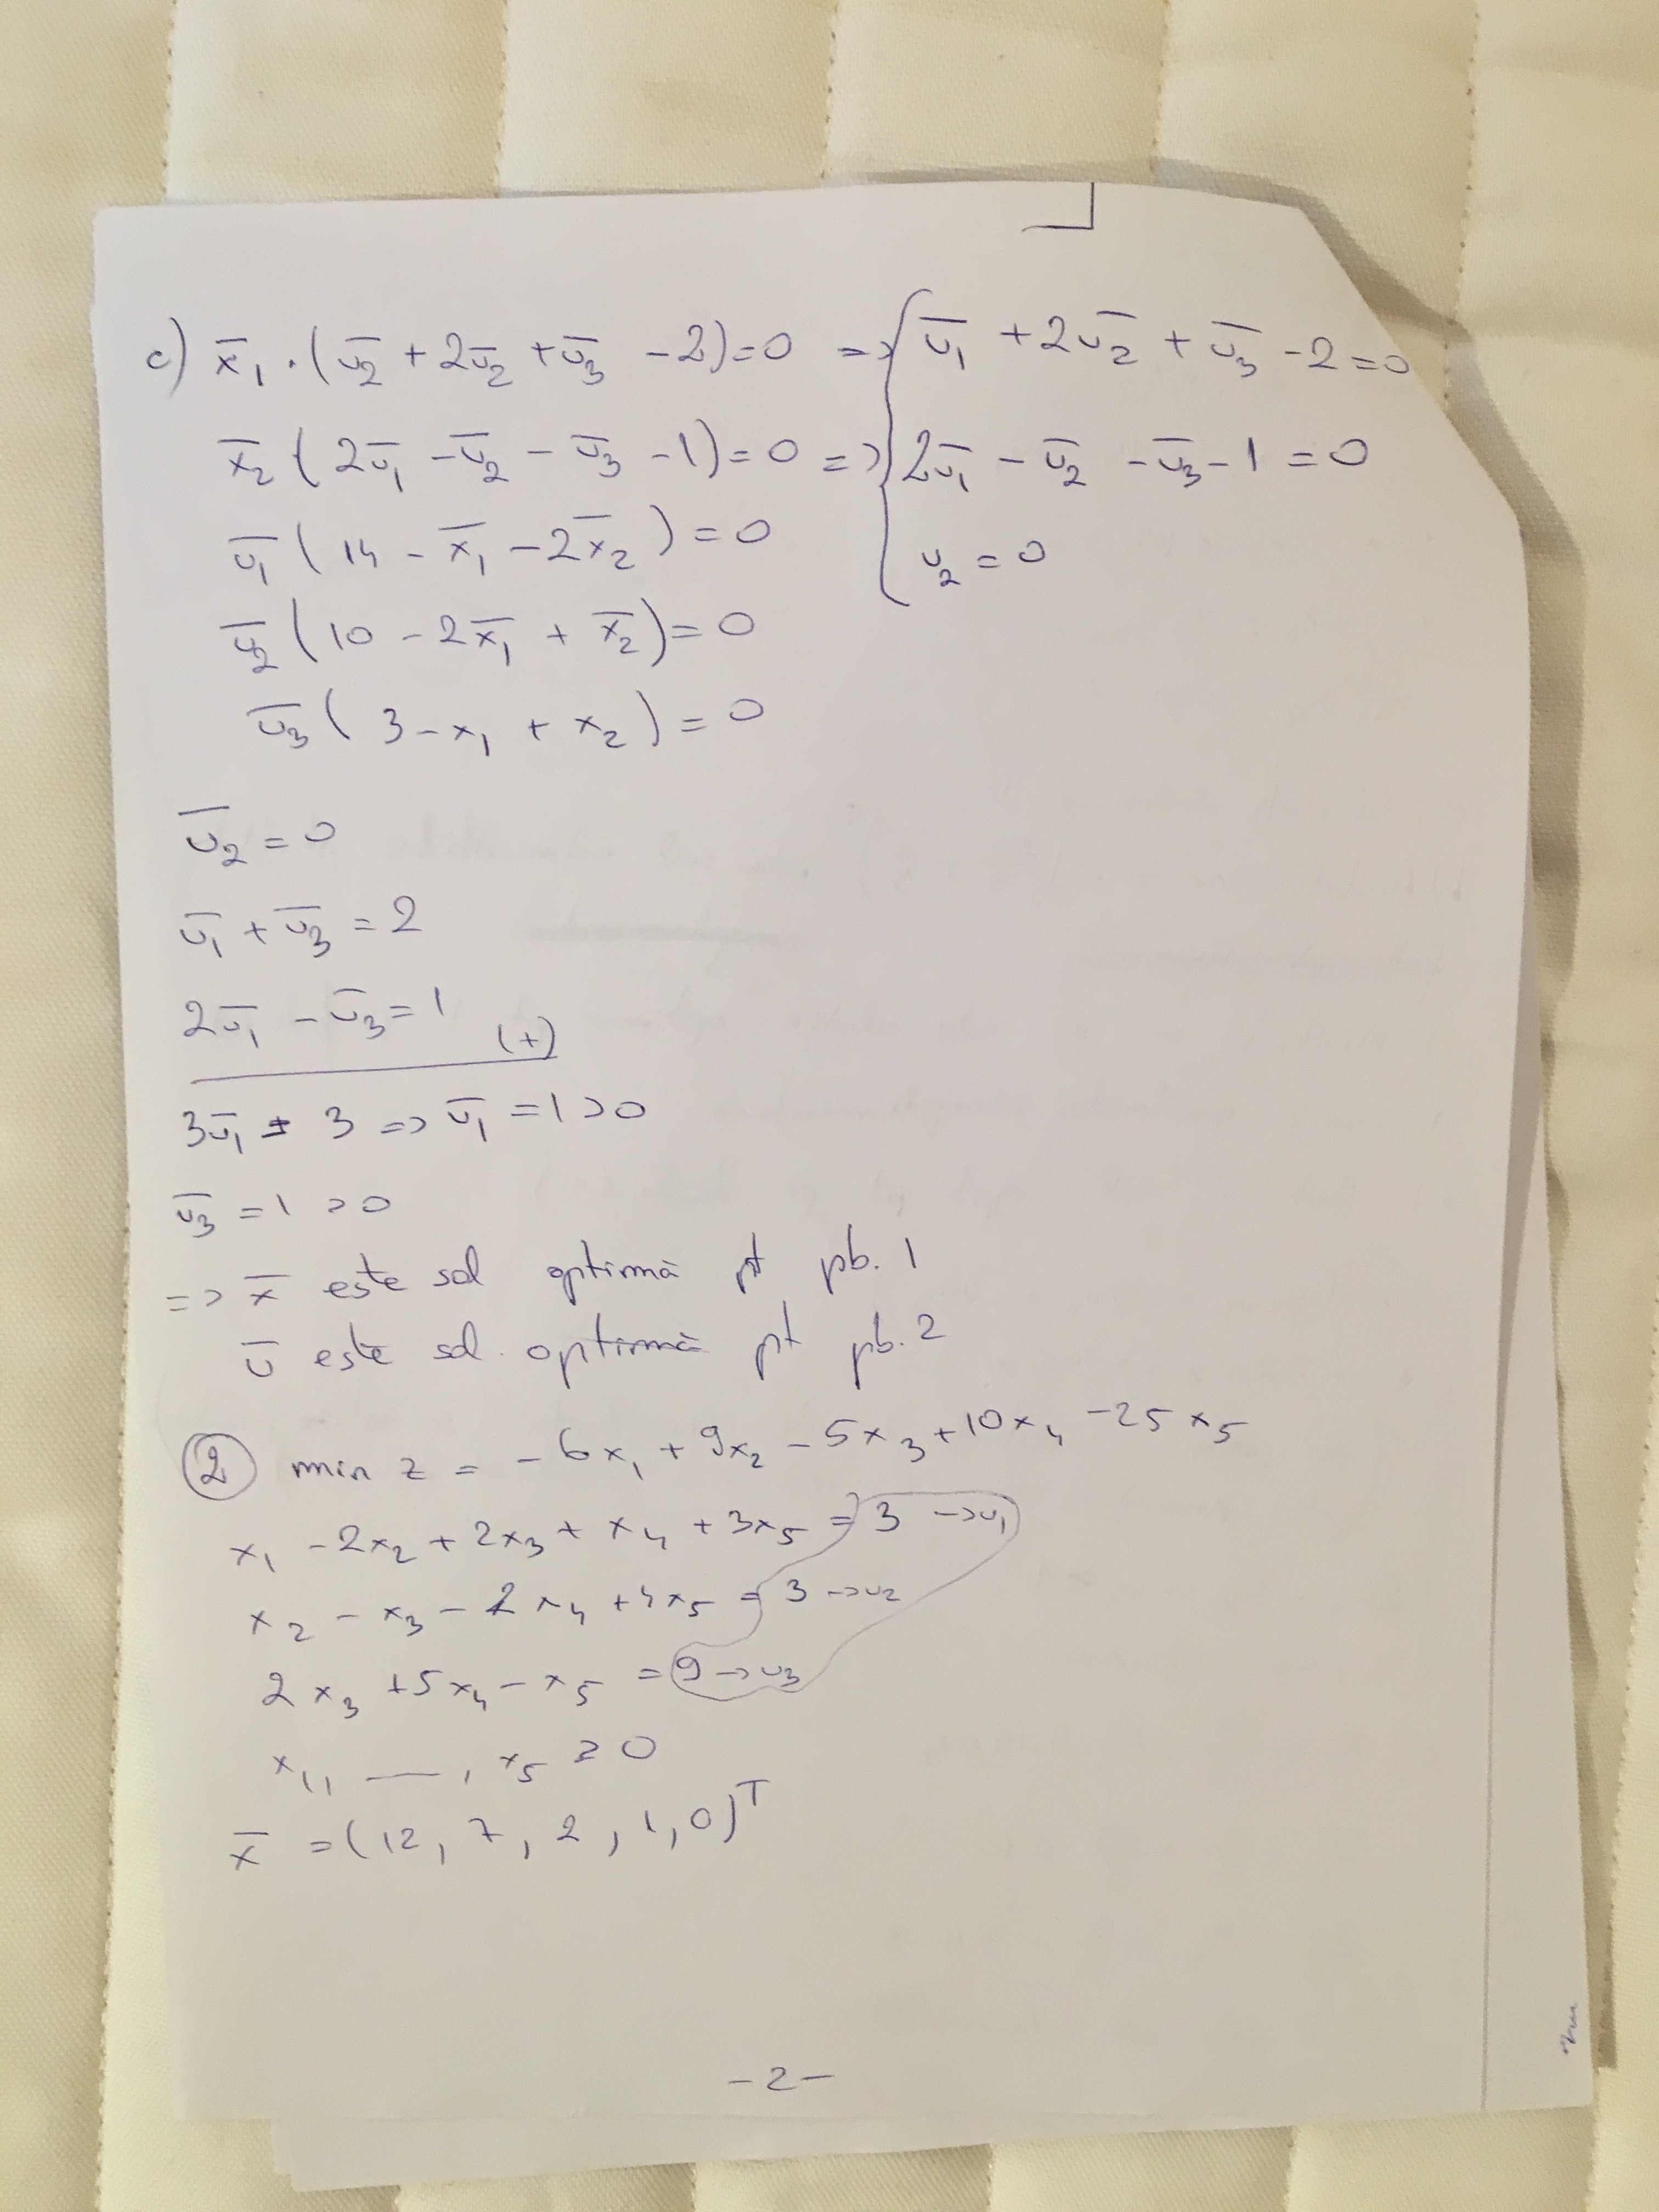 c) x̄₁ · (ū₂ + 2ū₂ + ū₃ - 2) = 0 => { ū₁ + 2ū₂ + ū₃ - 2 = 0
x̄₂ ( 2ū₁ - ū₂ - ū₃ - 1) = 0 => 2ū₁ - ū₂ - ū₃ - 1 = 0
ū₁ ( 14 - x̄₁ - 2x̄₂ ) = 0
u₂ = 0
ū₂ ( 10 - 2x̄₁ + x̄₂ ) = 0
ū₃ ( 3 - x₁ + x₂ ) = 0
ū₂ = 0
ū₁ + ū₃ = 2
2ū₁ - ū₃ = 1 (+)
3ū₁ = 3 => ū₁ = 1 > 0
ū₃ = 1 > 0
=> x̄ este sol optimă pt pb. 1
ū este sol. optimă pt pb. 2
② min z = - 6x₁ + 9x₂ - 5x₃ + 10x₄ - 25x₅
x₁ - 2x₂ + 2x₃ + x₄ + 3x₅ = 3 -> u₁
x₂ - x₃ - 2x₄ + 4x₅ = 3 -> u₂
2x₃ + 5x₄ - x₅ = 9 -> u₃
x₁, —, x₅ ≥ 0
x̄ = (12, 7, 2, 1, 0)ᵀ
- 2 -